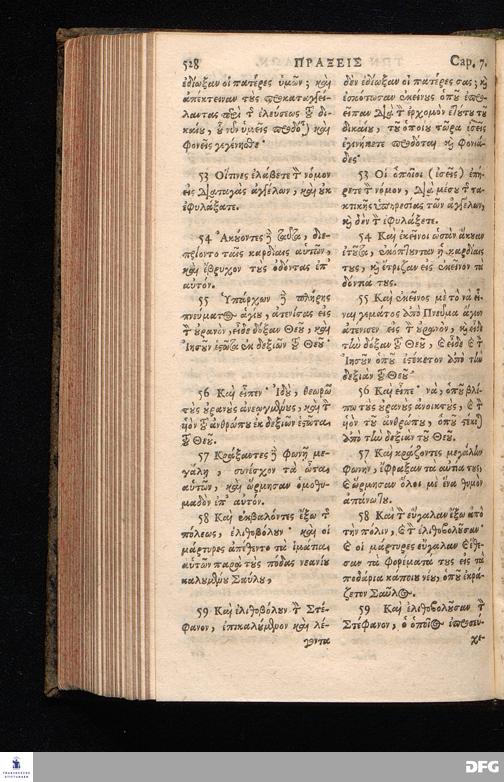 528 ΠΡΑΞΕΙΣ Cap. 7.
ἐδίωξαν οἱ πατέρες ὑμῶν; καὶ
ἀπέκτειναν τοὺς προκαταγγεί-
λαντας περὶ τῆς ἐλεύσεως τοῦ δι-
καίου, οὗ νῦν ὑμεῖς προδόται καὶ
φονεῖς γεγένησθε·
53 Οἵτινες ἐλάβετε τὸν νόμον
εἰς διαταγὰς ἀγγέλων, καὶ οὐκ
ἐφυλάξατε.
54 Ἀκούοντες δὲ ταῦτα, διε-
πρίοντο ταῖς καρδίαις αὑτῶν,
καὶ ἔβρυχον τοὺς ὀδόντας ἐπ'
αὐτόν.
55 Ὑπάρχων δὲ πλήρης
πνεύματος ἁγίου, ἀτενίσας εἰς
τὸν οὐρανὸν, εἶδε δόξαν Θεοῦ, καὶ
Ἰησοῦν ἑστῶτα ἐκ δεξιῶν τοῦ Θεοῦ·
56 Καὶ εἶπεν· Ἰδοὺ, θεωρῶ
τοὺς οὐρανοὺς ἀνεῳγμένους, καὶ τὸν
υἱὸν τοῦ ἀνθρώπου ἐκ δεξιῶν ἑστῶτα
τοῦ Θεοῦ.
57 Κράξαντες δὲ φωνῇ με-
γάλῃ, συνέσχον τὰ ὦτα
αὑτῶν, καὶ ὥρμησαν ὁμοθυ-
μαδὸν ἐπ' αὐτόν.
58 Καὶ ἐκβαλόντες ἔξω τῆς
πόλεως, ἐλιθοβόλουν· καὶ οἱ
μάρτυρες ἀπέθεντο τὰ ἱμάτια
αὑτῶν παρὰ τοὺς πόδας νεανίου
καλουμένου Σαύλου,
59 Καὶ ἐλιθοβόλουν τὸν Στέ-
φανον, ἐπικαλούμενον καὶ λέ-
γοντα
δὲν ἐδίωξαν οἱ πατέρες σας; καὶ
ἐσκότωσαν ἐκείνους ὁποῦ ἐπρο-
εῖπαν διὰ τὸν ἐρχομὸν ἐτούτου τοῦ
δικαίου, τοῦ ὁποίου τώρα ἐσεῖς
ἐγενήκετε προδόται καὶ φονιά-
δες·
53 Οἱ ὁποῖοι (ἐσεῖς) ἐπή-
ρετε τὸν νόμον, διὰ μέσου τῆς τα-
κτικῆς ὑπηρεσίας τῶν ἀγγέλων,
καὶ δὲν τὸν ἐφυλάξετε.
54 Καὶ ἐκεῖνοι ὡσὰν ἄκουαν
ἐτοῦτα, ἐκόπτουνταν ἡ καρδίαις
τους, καὶ ἔτριζαν εἰς ἐκεῖνον τὰ
δόντια τους.
55 Καὶ ἐκεῖνος μὲ τὸ νὰ εἶ-
ναι γεμάτος ἀπὸ Πνεῦμα ἅγιον
ἀτένισεν εἰς τὸν οὐρανὸν, καὶ εἶδε
τὴν δόξαν τοῦ Θεοῦ, καὶ εἶδε τὸν
Ἰησοῦν ὁποῦ ἐστέκετον ἀπὸ τὴν
δεξιὰν τοῦ Θεοῦ·
56 Καὶ εἶπε· νὰ, ὁποῦ βλέ-
πω τοὺς οὐρανοὺς ἀνοικτοὺς, καὶ τὸν
υἱὸν τοῦ ἀνθρώπου, ὁποῦ στέκει
ἀπὸ τὴν δεξιὰν τοῦ Θεοῦ.
57 Καὶ κράζοντες μεγάλην
φωνὴν, ἔφραξαν τὰ αὐτία τους,
καὶ ὥρμησαν ὅλοι μὲ ἕνα θυμὸν
ἀπάνω του.
58 Καὶ τὸν εὔγαλαν ἔξω ἀπὸ
τὴν πόλιν, καὶ τὸν ἐλιθοβολοῦσαν·
καὶ οἱ μάρτυρες εὔγαλαν καὶ ἔθε-
σαν τὰ φορέματά τους εἰς τὰ
ποδάρια κάποιου νέου, ὁποῦ ἐκρά-
ζετον Σαῦλος.
59 Καὶ ἐλιθοβολοῦσαν τὸν
Στέφανον, ὁ ὁποῖος ἐπροσευ-
χε-
DFG